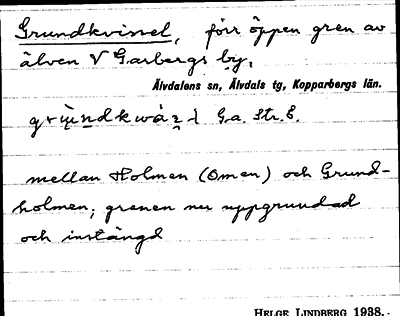 Grundkvissel, förr öppen gren av
älven V Garbergs by,
Älvdalens sn, Älvdals tg, Kopparbergs län.
Ga. Str. E.
mellan Holmen (Omen) och Grund-
holmen; grenen nu uppgrundad
och instängd
HELGE LINDBERG 1938.